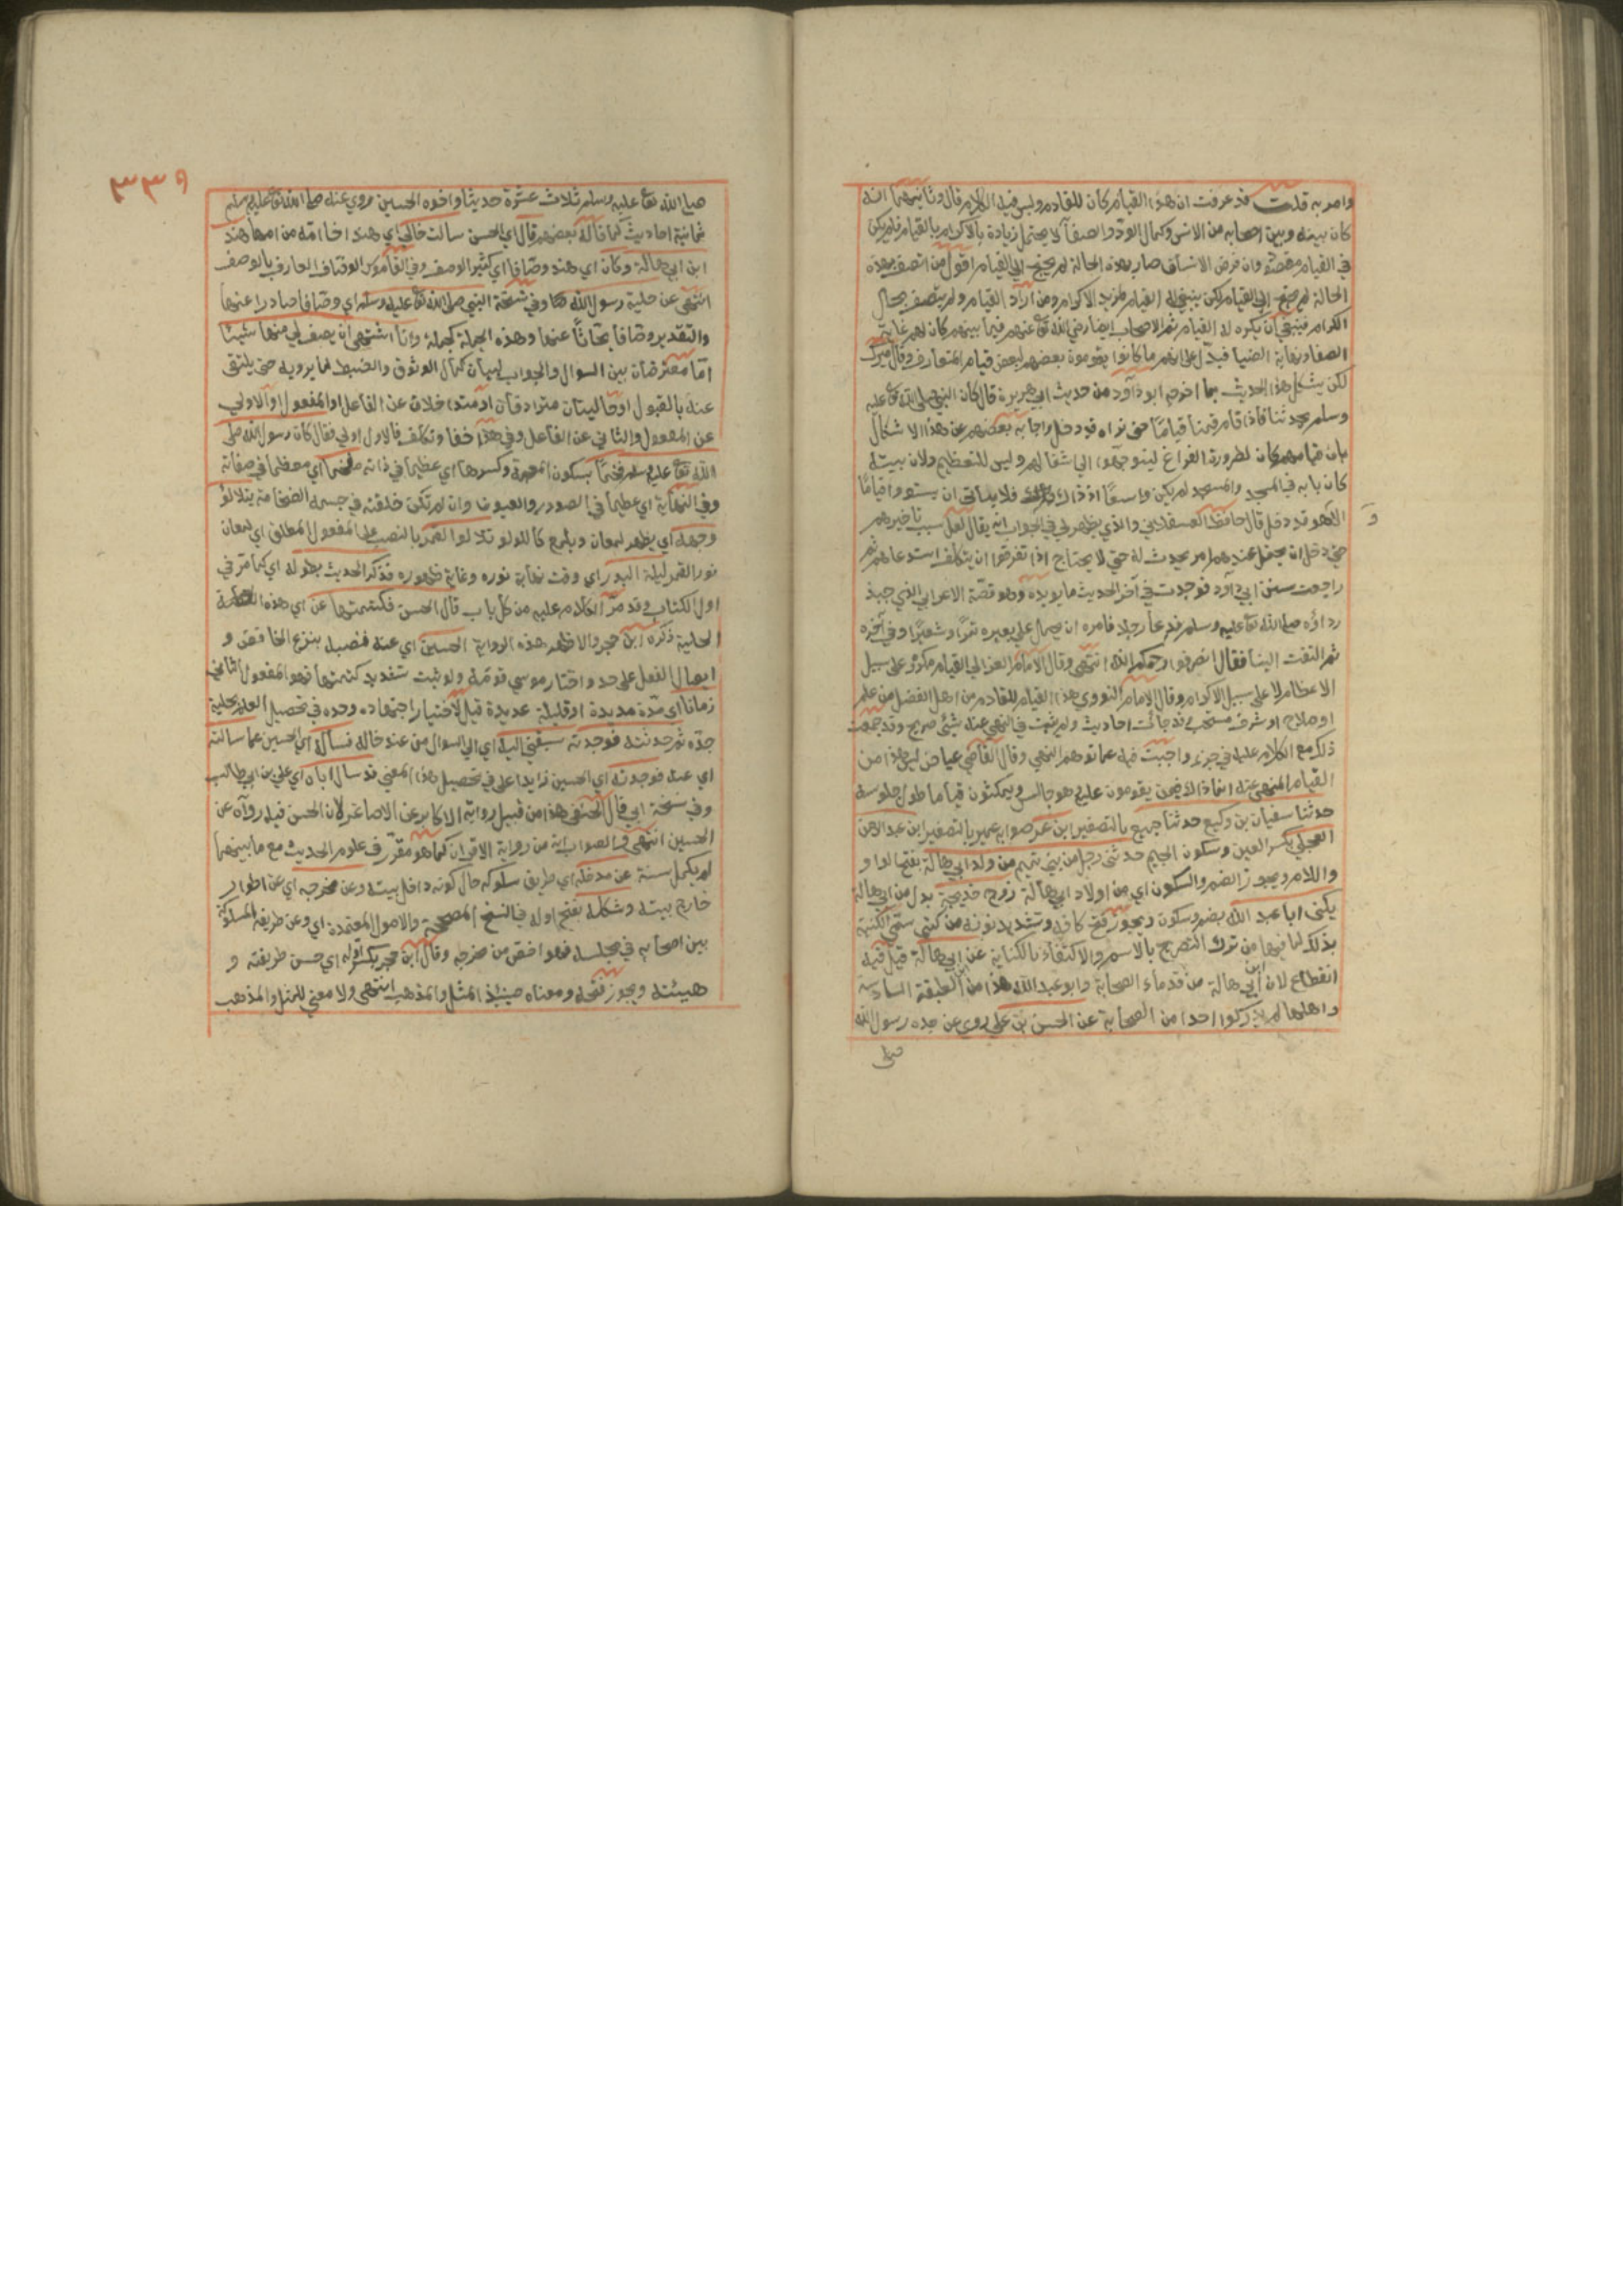 وامر به قلت قد عرفت ان هذا القيام كان للقادم وليس فيه الكلام قال وثانيهما انه
كان بينه وبين اصحابه من الانس وكمال الود والصفا لا يحتمل زيادة بالاكرام بالقيام فلم يكن
في القيام مقصود وان فرض الانسان صار بهذه الحالة لم يحتج الى القيام اقول من اتصف بهذه
الحالة لم يحتج الى القيام لكن ينبغي له القيام لمزيد الاكرام ومن اراد القيام ولم يتصف بحال
الكرام فينبغي ان يكره له القيام ثم الاصحاب ايضا رضي الله تع عنهم فيما بينهم كان لهم غاية
الصفا ونهاية الضيا فيدل على انهم ما كانوا يقوموا بعضهم لبعض قيام المتعارف وقال ميرك
لكن يشكل هذا الحديث بما اخرجه ابو داود من حديث ابي هريرة قال كان النبي صلى الله تع عليه
وسلم يحدثنا فاذا قام قمنا قياما حتى نراه قد دخل واجاب بعضهم عن هذا الاشكال
بان قيامهم كان لضرورة الفراغ ليتوجهوا الى اشغالهم وليس للتعظيم ولان بيته
كان بابه في المسجد والمسجد لم يكن واسعا اذ ذاك فلا يتأتى ان يستووا قياما
الا وهو قد دخل قال حافظ العسقلاني والذي يظهر لي في الجواب انه يقال لعل سبب تاخيرهم
حتى دخل ان يحتمل عندهم امر يحدث له حتى لا يحتاج اذا تفرقوا ان يتكلف استدعاءهم ثم
راجعت سنن ابي داود فوجدت في آخر الحديث ما يويده وهو قصة الاعرابي الذي جبذ
رداؤه صلى الله تع عليه وسلم فدعا رجلا فامره ان يحمل على بعيره تمرا وشعيرا وفي آخره
ثم التفت الينا فقال انصرفوا رحمكم الله انتهى وقال الامام الغزالي القيام مكروه على سبيل
الاعظام لا على سبيل الاكرام وقال الامام النووي هذا القيام للقادم من اهل الفضل من علم
او صلاح او شرف مستحب قد جائت احاديث ولم يثبت في النهي عنه شئ صريح وقد جمعت
ذلك مع الكلام عليه في جزء واجبت فيه عما توهم النهي وقال القاضي عياض ليس هذا من
القيام المنهي عنه انما ذاك فيمن يقومون عليه وهو جالس ويمكثون قياما طول جلوسه
حدثنا سفيان بن وكيع حدثنا جميع بالتصغير ابن عمر صوابه عمير بالتصغير ابن عبد الرحمن
العجلي بكسر العين وسكون الجيم حدثني رجل من بني تميم من ولد ابي هالة بفتح الواو
واللام ويجوز الضم والسكون اي من اولاد ابي هالة زوج خديجة بدل من ابي هالة
يكنى ابا عبد الله بضم وسكون ويجوز فتح كافه وتشديد نونه من كنى ستمى الكنية
بذلك لما فيها من ترك التصريح بالاسم والاكتفاء بالكناية عن ابي هالة قيل فيه
انقطاع لان ابن ابي هالة من قدماء الصحابة وابو عبد الله هذا من الطبقة السادسة
واهلها لم يدركوا احدا من الصحابة عن الحسن بن علي روى عن جده رسول الله
صلى
٣٣٩
صلى الله تع عليه وسلم ثلاث عشرة حديثا واخوه الحسين روي عنه صلى الله تع عليه وسلم
ثمانية احاديث كما قاله بعضهم قال اي الحسن سالت خالي اي هند اخا امه من امها هند
ابن ابي هالة وكان اي هند وصافا اي كثير الوصف وفي القاموس الوصاف العارف بالوصف
انتهى عن حلية رسول الله وفي نسخة النبي صلى الله تع عليه وسلم اي وصافا صادرا عنها
والتقدير وصافا بحاثا عنها وهذه الجملة كجملة وانا اشتهي ان يصف لي منها شيئا
اما معترضتان بين السوال والجواب لبيان كمال الوثوق والضبط لما يرويه حتى يلتقى
عنه بالقبول او حاليتان مترادفتان او متداخلان عن الفاعل او المفعول او الاولى
عن المفعول والثاني عن الفاعل وفي هذا خفا وتكلف فالاول اولى فقال كان رسول الله صلى
الله تع عليه وسلم فخما بسكون المعجمة وكسرها اي عظيما في ذاته مفخما اي معظما في صفاته
وفي النهاية اي عظيما في الصدور والعيون وان لم تكن خلقته في جسمه الضخامة يتلالؤ
وجهه اي يظهر لمعان ويلمع كاللؤلؤ تلالوا القمر بالنصب على المفعول المطلق اي لمعان
نور القمر ليلة البدر اي وقت نهاية نوره وغاية ظهوره فذكر الحديث بطوله اي كما مر في
اول الكتاب وقد مر الكلام عليه من كل باب قال الحسن فكتمتها عن اي هذه
الحلية ذكره ابن حجر والاظهر هذه الرواية الحسين اي عنه فنصبه بنزع الخافض و
ايصال الفعل على حد واختار موسى قومه ولو ثبت تشديد كتمتها فهو المفعول الثاني
زمانا اي مدة مديدة او قليلة عديدة قيل لاختبار اجتهاده وحده في تحصيل العلم بحلية
جده ثم حدثته فوجدته سبقني اليه اي الى السوال من عند خاله فسأله اي الحسين عما سالته
اي عنه فوجدته اي الحسين زايدا على في تحصيل هذا المعنى قد سال اباه اي علي بن ابي طالب
وفي نسخة ابي قال الحنفي هذا من قبيل رواية الاكابر عن الاصاغر لان الحسن قيل رواه عن
الحسين انتهى والصواب انه من رواية الاقران كما هو مقرر في علوم الحديث مع ما بينهما
لم يكمل سنة عن مدخله اي طريق سلوكه حال كونه داخل بيته وعن مخرجه اي عن اطوار
خارج بيته وشكله بفتح اوله في النسخ المصححة والاصول المعتمدة اي وعن طريقه المسلوكة
بين اصحابه في مجلسه فهو اخص من مخرجه وقال ابن حجر بكسر اوله اي حسن طريقته و
هيئته ويجوز فتحه ومعناه حينئذ المثل والمذهب انتهى ولا معنى للمثل والمذهب